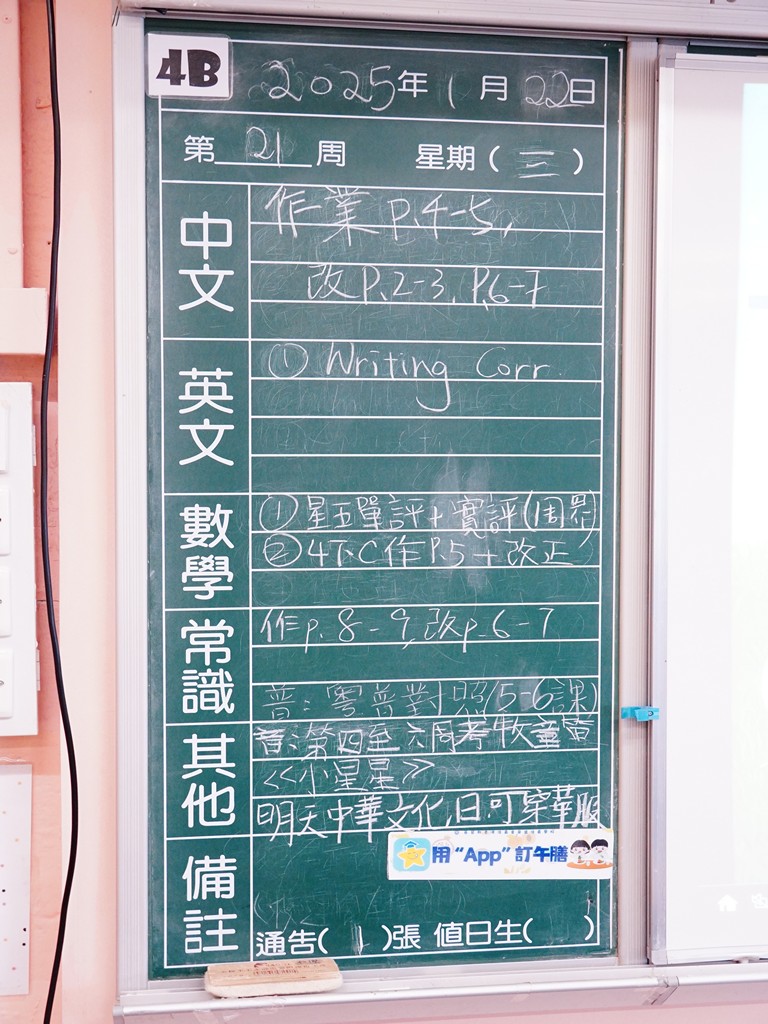 4B 2025年1月22日
第21周 星期(三)
中文
作業 P.4-5,
改 P.2-3, P.6-7
英文
① Writing Corr.
數學
① 星五單評+實評(周界)
② 4下C作P.5+改正
常識
作p.8-9,改p.6-7
普:粵普對照(5-6課)
其他
音:第四至六周考牧童笛
<<小星星>>
明天中華文化日可穿華服
備註
用“App”訂午膳
通告(1)張 值日生( )